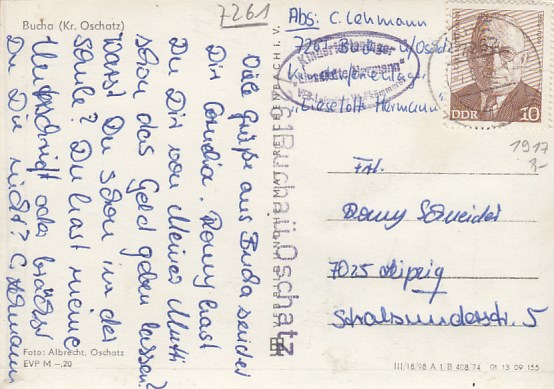 Bucha (Kr. Oschatz)
7261
Abs: C. Lehmann
7261 Bucha ü/Oschatz
Kinderferienlager
"Lieselotte Herrmann"
Kinderferienlager
"Lieselotte Hermann"
DDR 10
1917
7261 Bucha ü. Oschatz
Viele Grüße aus Bucha sendet
Dir Cornelia. Romy hast
Du Dir von Meiner Mutti
schon das Geld geben lassen?
Warst Du schon in der
Schule? Du hast meine
Du Die nicht? C. Lehmann
Frl.
Romy Schneider
7025 Leipzig
Stralsunderstr. 5
Foto: Albrecht, Oschatz
EVP M –,20
III/18/98 A 1 B 408/74 01 13 09 155